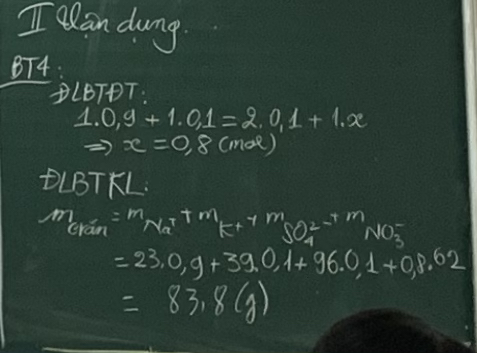 II Vận dụng.
BT4:
ĐLBTĐT:
1.0,9 + 1.0,1 = 2.0,1 + 1.x
=> x = 0,8 (mol)
ĐLBTKL:
m rắn = m Na⁺ + m K⁺ + m SO₄²⁻ + m NO₃⁻
= 23.0,9 + 39.0,1 + 96.0,1 + 0,8.62
= 83,8 (g)